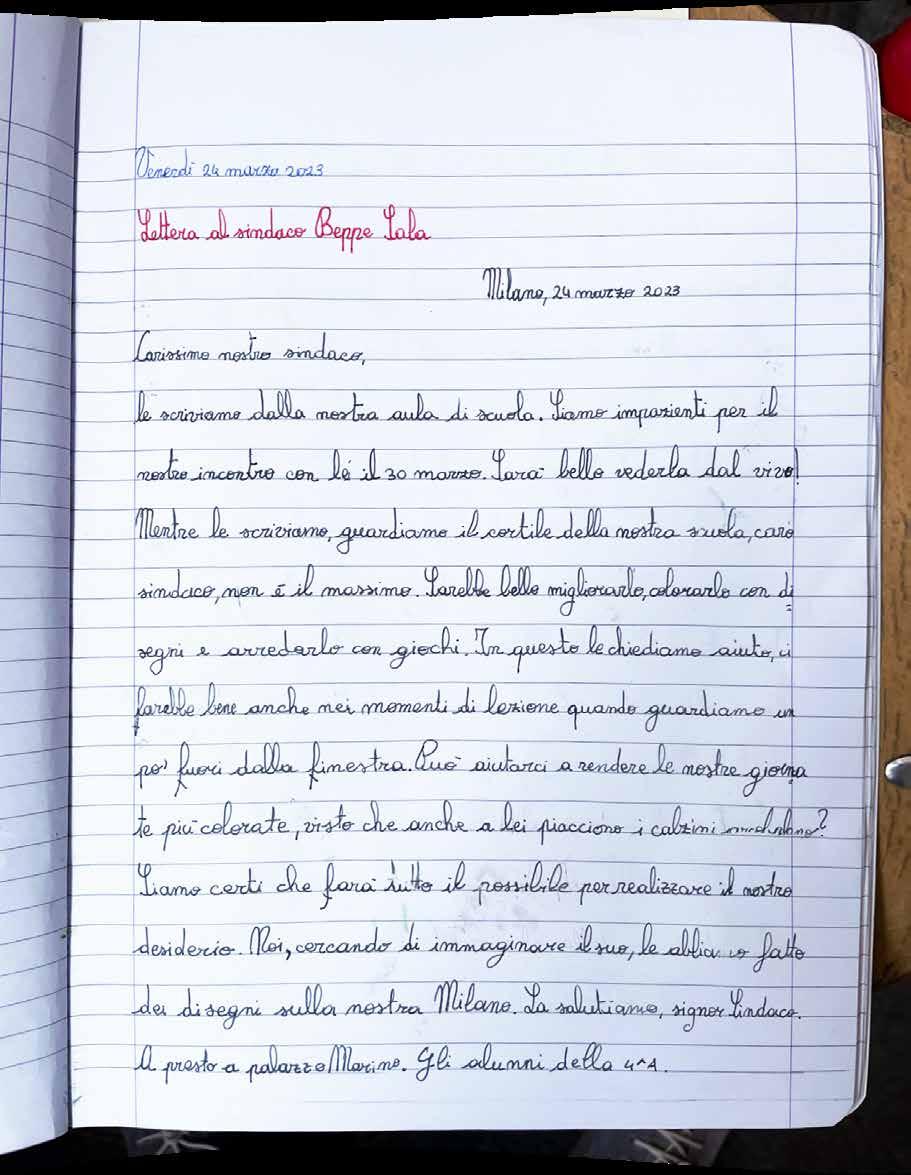 Venerdì 24 marzo 2023
Lettera al sindaco Beppe Sala
Milano, 24 marzo 2023
Carissimo nostro sindaco,
le scriviamo dalla nostra aula di scuola. Siamo impazienti per il
nostro incontro con lei il 30 marzo. Sarà bello vederla dal vivo!
Mentre le scriviamo, guardiamo il cortile della nostra scuola, caro
sindaco, non è il massimo. Sarebbe bello migliorarlo, colorarlo con di
segni e arredarlo con giochi. In questo le chiediamo aiuto, ci
farebbe bene anche nei momenti di lezione quando guardiamo un
po' fuori dalla finestra. Può aiutarci a rendere le nostre giorna
te più colorate, visto che anche a lei piacciono i calzini ?
Siamo certi che farà tutto il possibile per realizzare il nostro
desiderio. Noi, cercando di immaginare il suo, le abbiamo fatto
dei disegni sulla nostra Milano. La salutiamo, signor Sindaco.
A presto a palazzo Marino. Gli alunni della 4^A.